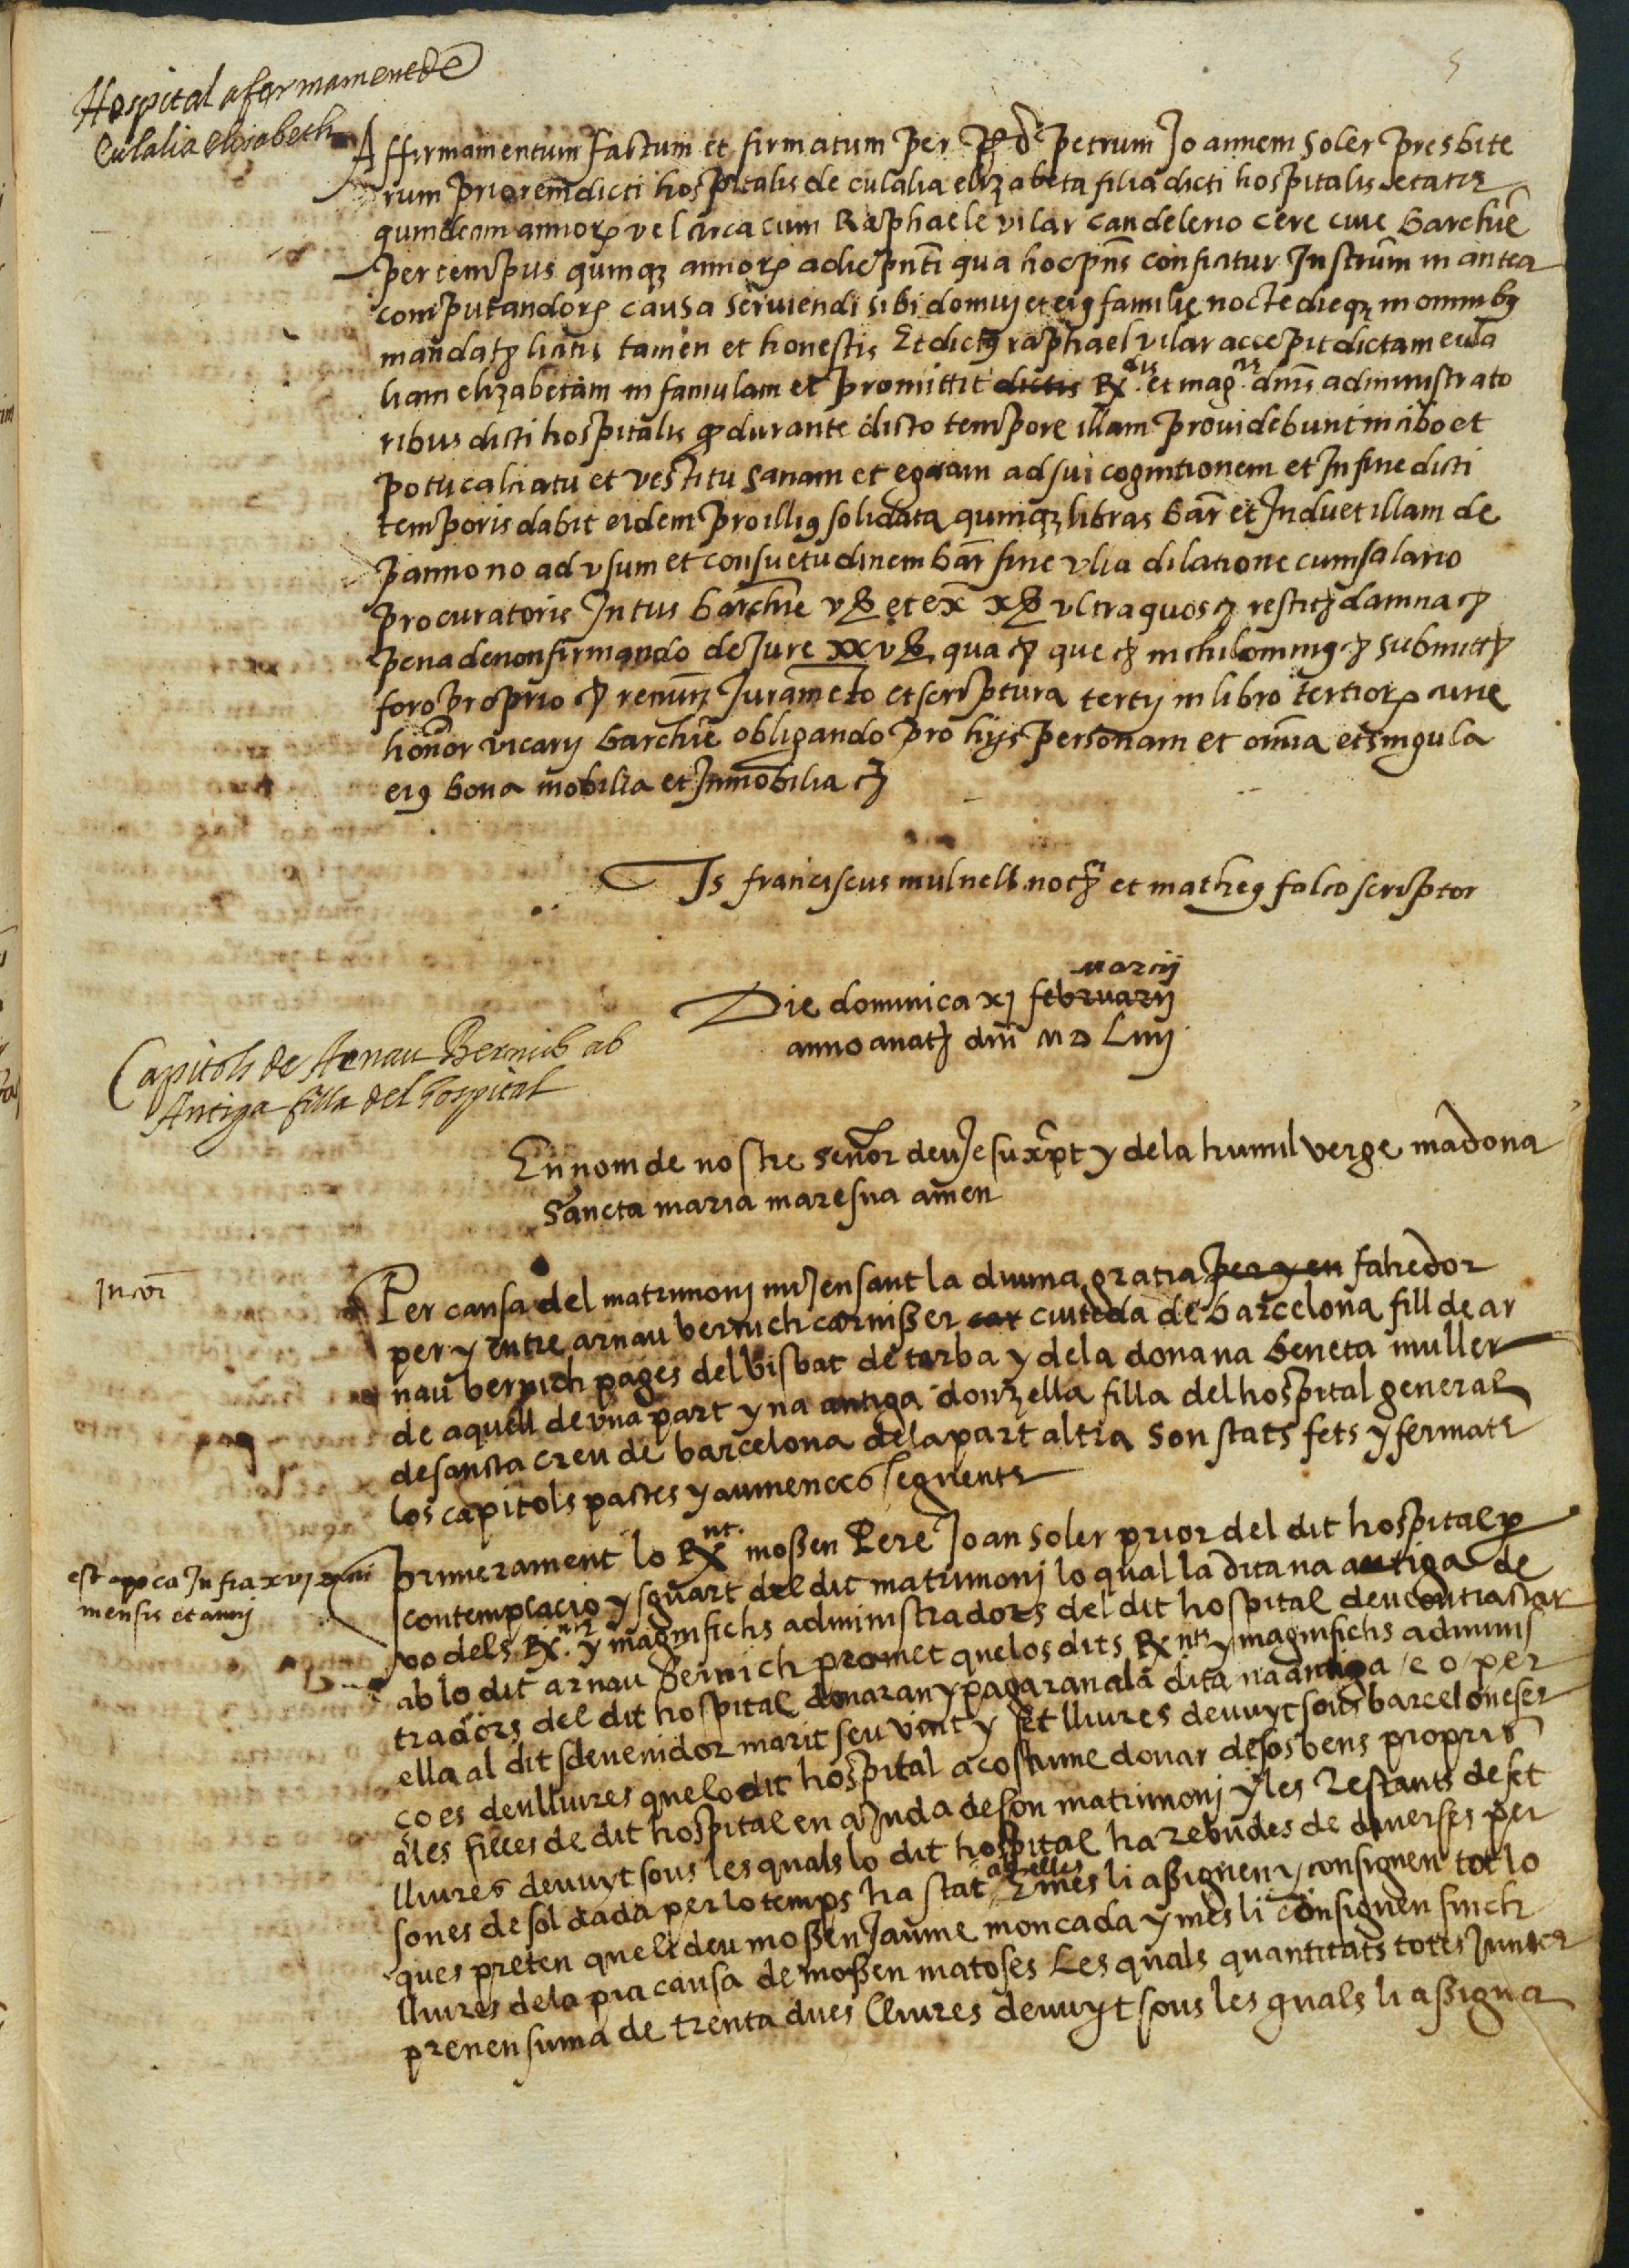 5
Hospital afermament de
Eulalia elisabeth
Affirmamentum factum et firmatum per Rd petrum Joannem soler presbite
rum priorem dicti hospitalis de eulalia elizabeta filia dicti hospitalis etatis
quindecim annorꝝ vel circa cum Raphaele vilar candelerio cere cive Barchne
per tempus quinqꝫ annorꝝ a die pnti qua hoc pns conficitur Instrum in antea
computandorꝝ causa serviendi sibi domui et eiꝯ familie nocte dieqꝫ in omnibꝯ
mandatꝭ licitis tamen et honestis Et dictꝯ raphael vilar accepit dictam eula
liam elizabetam in famulam et promittit dictis Rx.dis et mag.cis dnis administrato
ribus dicti hospitalis ꝙ durante dicto tempore illam providebunt in cibo et
potu calciatu et vestitu sanam et egram ad sui cognitionem et In fine dicti
temporis dabit eidem pro illiꝯ solidata quinqꝫ libras bar et Induet illam de
panno no ad usum et consuetudinem bar sine ulla dilatione cum salario
procuratoris Intus barchne v ß et ex x ß ultra quos ꝛc restitꝛ damna ꝛc
pena de non firmando de Jure xxv ß qua ꝛc que ꝛc nichilominꝯ ꝛc submittꝛ
foro proprio ꝛc renunꝫ Juramēto et scriptura tertij in libro tertiorꝝ curie
honor vicarij barchne obligando pro hijs personam et omnia et singula
eiꝯ bona mobilia et Inmobilia ꝛc
Ts franciscus mulnell notꝛ et matheꝯ falco scriptor
marcij
Die dominica xj februarij
anno a natꝛ dni M D Liiij
Capitols de Arnau Bernich ab
Antiga filla del hospital
En nom de nostre señor deu Jesu xpt y de la humil verge madona
Sancta maria mare sua amen
In cor
Per causa del matrimonj mijensant la divina gratia per y en fahedor
per y entre arnau bernich carnisser car ciuteda de barcelona fill de ar
nau bernich pages del bisbat de tarba y de la dona na beneta muller
de aquell de una part y na antiga donzella filla del hospital general
de sancta creu de barcelona de la part altra son stats fets y fermats
los capitols pactes y avinences seguents
est apoca Infra xvj
mensis et annj
Primerament lo Rx.nt mossen Pere Joan soler prior del dit hospital p
contemplacio y sguart del dit matrimonj lo qual la dita na antiga de
vo dels Rx.nts y magnifichs administradors del dit hospital deu contractar
ab lo dit arnau bernich promet que los dits Rx nts y magnifichs adminis
tradors del dit hospital donaran y pagaran a la dita na antiga /e o/ per
ella al dit sdevenidor marit seu vint y set lliures devuyt sous barceloneses
co es deu lliures que lo dit hospital acostume donar de sos bens propris
a les filles de dit hospital en aJuda de son matrimonj y les restants deset
lliures devuyt sous les quals lo dit hospital ha rebudes de diverses per
sones de soldada per lo temps ha stat ab elles E mes li assignen y consignen tot lo
ques preten que li deu mossen Jaume moncada y mes li consignen sinch
lliures de la pia causa de mossen matoses Les quals quantitats totes Juntes
prenen suma de trenta dues lliures devuyt sous les quals li assigna